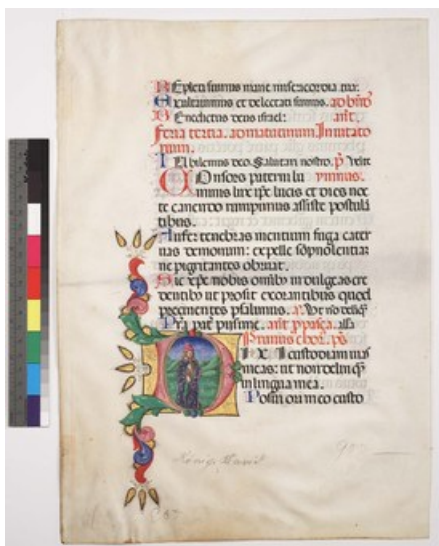 Repleti sumus mane misericordia tua:
Exultavimus et delectati sumus. ad bñdˢ
Benedictus deus israel: añt.
feria tertia. ad matutinum. Invitato
rium.
Iubilemus deo. Salutari nostro. p̄ Venite
Consors paterni lu ymnus.
minis lux ip̄e lucis et dies noc
te canendo rumpimus assiste postula
tibus.
Aufer tenebras mentium fuga cater
uas demonum: expelle
ne pigritantes obruat.
Sic xp̄e nobis omib; indulgeas cre
dentib; ut prosit exorantibus quod
precinentes psalimus. a. Vt nō delīq̄
Pr̄a pat̄ piissime. añt
p̄s
IXI custodiam uias
meas: ut non delīq̄
in lingua mea.
Posui ori meo custo
König David
90